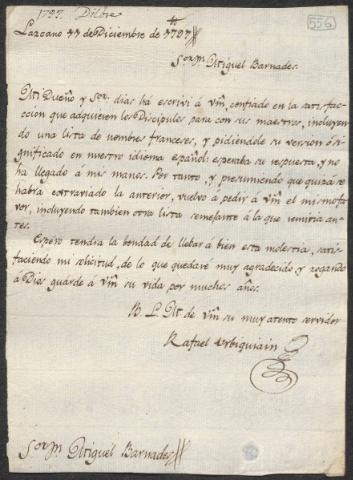 1797. Dicbre
556
Lazcano 17 de Diciembre de 1797
Sor. Dn. Miguel Barnades.
Mi Dueño y Sor: dias ha escrivi á Vm, confiado en la satisfac-
cion que adquieren los Discipulos para con sus maestros, incluyen-
do una lista de nombres franceses, y pidiendole su version ó si-
gnificado en nuestro idioma español: esperaba su respuesta, y no
ha llegado á mis manos. Por tanto, y presumiendo que quizá se
habrá extraviado la anterior, vuelvo a pedir á Vm el mismo fa-
vor, incluyendo tambien otra lista semejante á la que remitia an-
tes.
Espero tendra la bondad de llebar á bien esta molestia, satis-
faciendo mi solicitud, de lo que quedare muy agradecido y rogando
á Dios guarde á Vm su vida por muchos años.
B. L. M. de Vm su muy atento servidor
Rafael Urbiquiain
Sor. Dn. Miguel Barnades